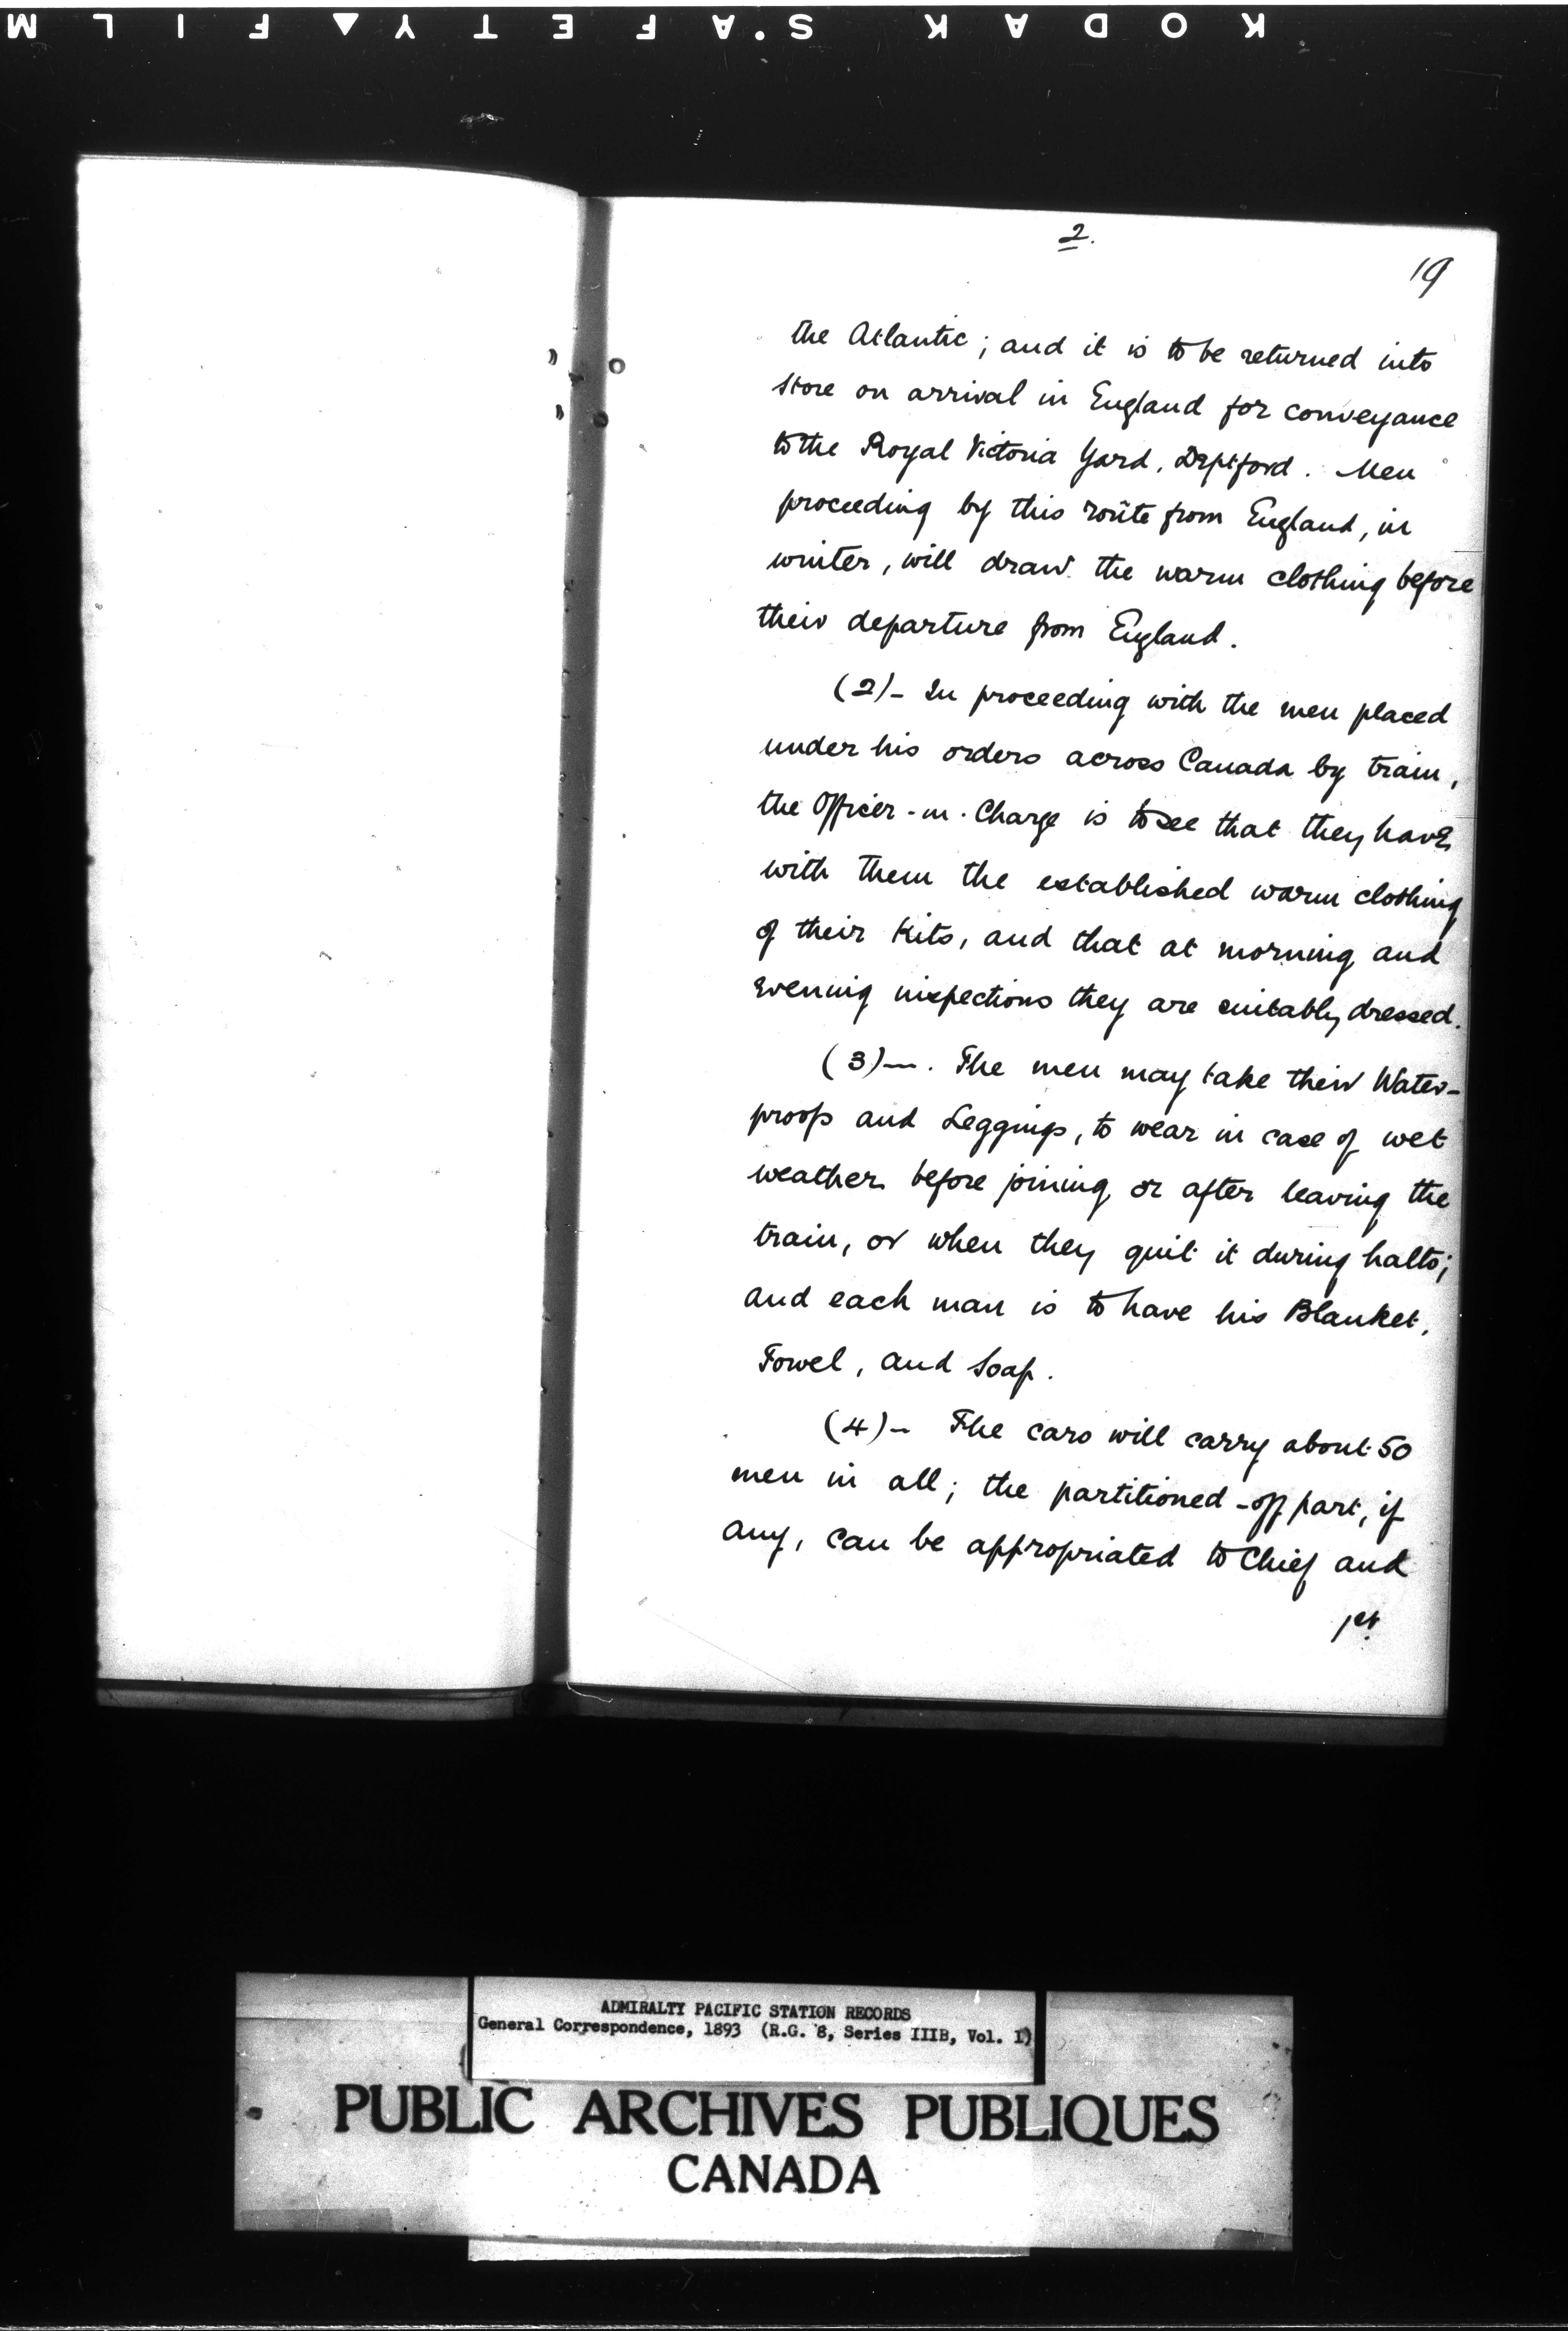 KODAK S.AFETY▲FILM
2.
19
the Atlantic; and it is to be returned into
store on arrival in England for conveyance
to the Royal Victoria Yard, Deptford. Men
proceeding by this roûte from England, in
winter, will draw the warm clothing before
their departure from England.
(2)- In proceeding with the men placed
under his orders across Canada by train,
the Officer-in-Charge is to see that they have
with them the established warm clothing
of their Kits, and that at morning and
evening inspections they are suitably dressed.
(3)—. The men may take their Water-
proofs and Leggings, to wear in case of wet
weather before joining or after leaving the
train, or when they quit it during halts;
and each man is to have his Blanket,
Towel, and Soap.
(4)- The cars will carry about 50
men in all; the partitioned-off part, if
any, can be appropriated to Chief and
1st
ADMIRALTY PACIFIC STATION RECORDS
General Correspondence, 1893 (R.G. 8, Series IIIB, Vol. 1)
PUBLIC ARCHIVES PUBLIQUES
CANADA